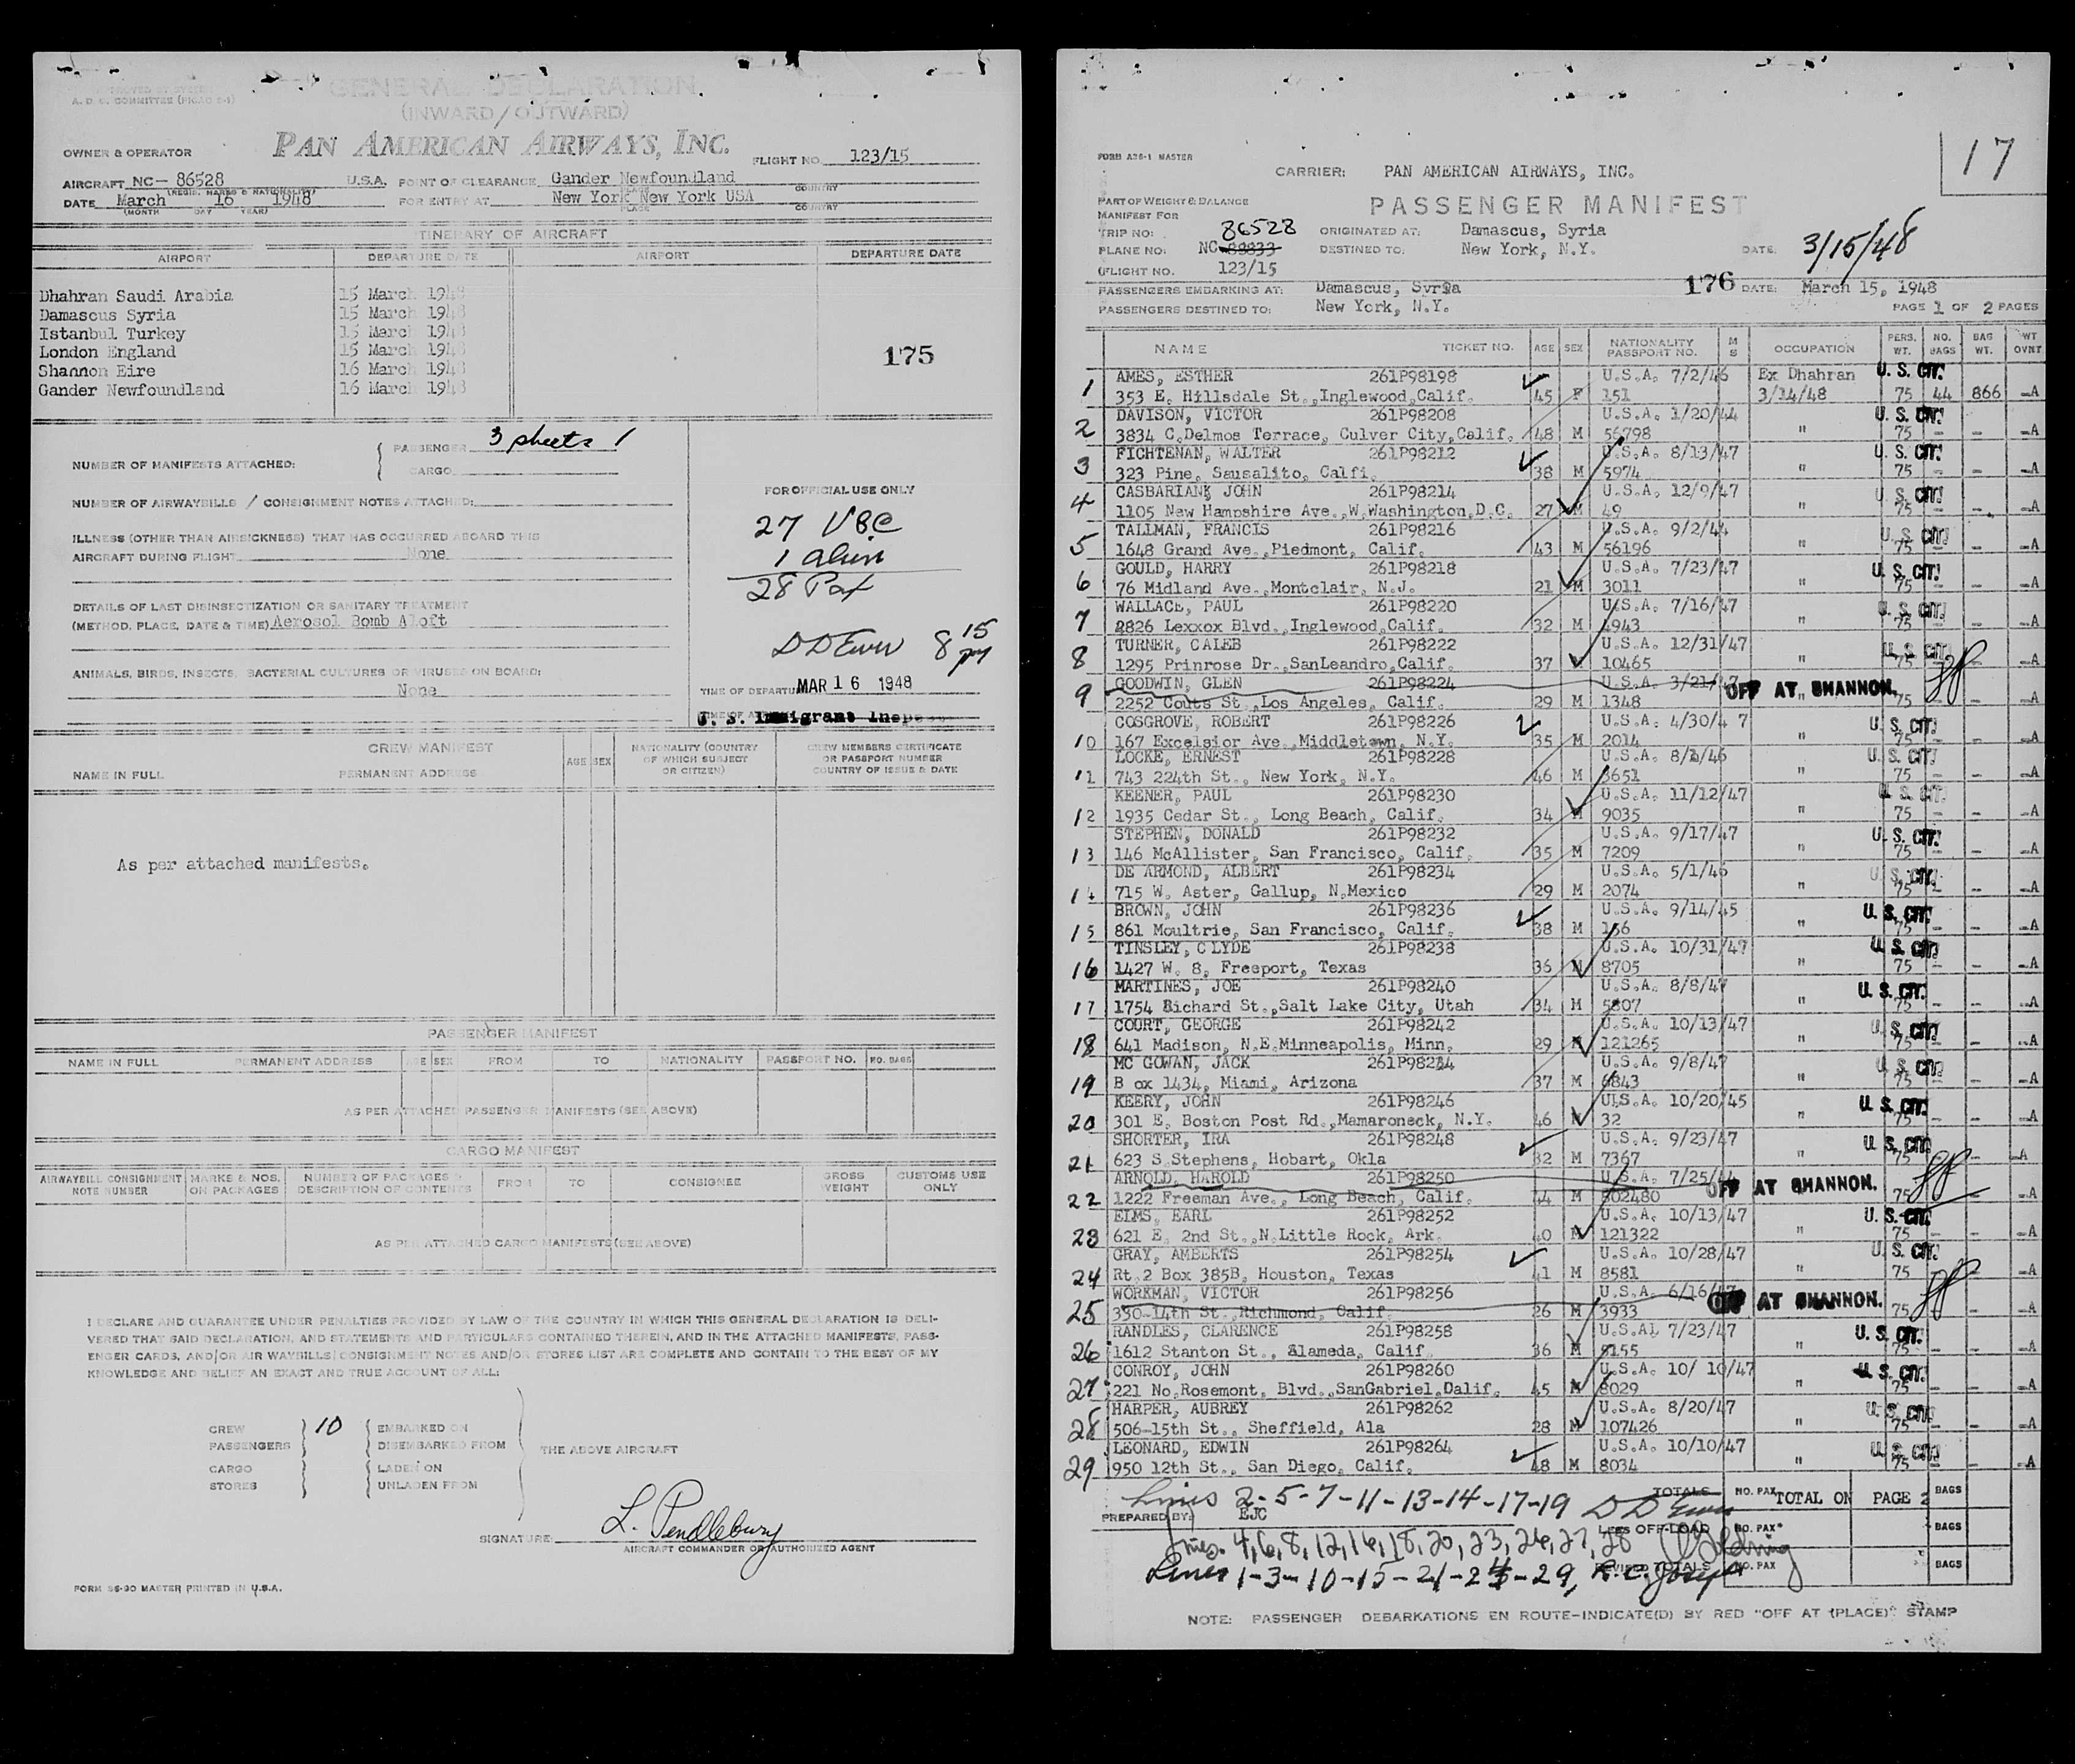 APPROVED BY
A. D. C. COMMITTEE (PICAO 2-1)
GENERAL DECLARATION
(INWARD/OUTWARD)
OWNER & OPERATOR PAN AMERICAN AIRWAYS, INC. FLIGHT NO. 123/15
AIRCRAFT NC- 86528 U.S.A. POINT OF CLEARANCE Gander Newfoundland
(REGIS. MARKS & NATIONALITY) PLACE COUNTRY
DATE March 16 1948 FOR ENTRY AT New York New York USA
(MONTH DAY YEAR) PLACE COUNTRY
ITINERARY OF AIRCRAFT
AIRPORT DEPARTURE DATE AIRPORT DEPARTURE DATE
Dhahran Saudi Arabia 15 March 1948
Damascus Syria 15 March 1948
Istanbul Turkey 15 March 1948
London England 15 March 1948
175
Shannon Eire 16 March 1948
Gander Newfoundland 16 March 1948
NUMBER OF MANIFESTS ATTACHED: PASSENGER 3 sheets 1
CARGO
NUMBER OF AIRWAYBILLS / CONSIGNMENT NOTES ATTACHED:
ILLNESS (OTHER THAN AIRSICKNESS) THAT HAS OCCURRED ABOARD THIS
AIRCRAFT DURING FLIGHT None
DETAILS OF LAST DISINSECTIZATION OR SANITARY TREATMENT
(METHOD, PLACE, DATE & TIME) Aerosol Bomb Aloft
ANIMALS, BIRDS, INSECTS, BACTERIAL CULTURES OR VIRUSES ON BOARD:
None
FOR OFFICIAL USE ONLY
27 USC
1 alien
28 Pax
8 15 pm
MAR 16 1948
TIME OF DEPARTURE
U. S. Immigrant Inspe
CREW MANIFEST
NAME IN FULL PERMANENT ADDRESS AGE SEX NATIONALITY (COUNTRY OF WHICH SUBJECT OR CITIZEN) CREW MEMBERS CERTIFICATE OR PASSPORT NUMBER COUNTRY OF ISSUE & DATE
As per attached manifests.
PASSENGER MANIFEST
NAME IN FULL PERMANENT ADDRESS AGE SEX FROM TO NATIONALITY PASSPORT NO. NO. BAGS
AS PER ATTACHED PASSENGER MANIFESTS (SEE ABOVE)
CARGO MANIFEST
AIRWAYBILL CONSIGNMENT NOTE NUMBER MARKS & NOS. ON PACKAGES NUMBER OF PACKAGES & DESCRIPTION OF CONTENTS FROM TO CONSIGNEE GROSS WEIGHT CUSTOMS USE ONLY
AS PER ATTACHED CARGO MANIFESTS (SEE ABOVE)
I DECLARE AND GUARANTEE UNDER PENALTIES PROVIDED BY LAW OF THE COUNTRY IN WHICH THIS GENERAL DECLARATION IS DELI-
VERED THAT SAID DECLARATION, AND STATEMENTS AND PARTICULARS CONTAINED THEREIN, AND IN THE ATTACHED MANIFESTS, PASS-
ENGER CARDS, AND/OR AIR WAYBILLS/CONSIGNMENT NOTES AND/OR STORES LIST ARE COMPLETE AND CONTAIN TO THE BEST OF MY
KNOWLEDGE AND BELIEF AN EXACT AND TRUE ACCOUNT OF ALL:
CREW 10 EMBARKED ON
PASSENGERS DISEMBARKED FROM THE ABOVE AIRCRAFT
CARGO LADEN ON
STORES UNLADEN FROM
SIGNATURE: L. Pendlebury
AIRCRAFT COMMANDER OR AUTHORIZED AGENT
FORM 36-20 MASTER PRINTED IN U.S.A.
17
FORM A36-1 MASTER
CARRIER: PAN AMERICAN AIRWAYS, INC.
PART OF WEIGHT & BALANCE
PASSENGER MANIFEST
MANIFEST FOR
TRIP NO: 86528 ORIGINATED AT: Damascus, Syria
PLANE NO: NC 88833 DESTINED TO: New York, N.Y. DATE: 3/15/48
(FLIGHT NO. 123/15
PASSENGERS EMBARKING AT: Damascus, Syria 176 DATE: March 15, 1948
PASSENGERS DESTINED TO: New York, N.Y. PAGE 1 OF 2 PAGES
NAME TICKET NO. AGE SEX NATIONALITY PASSPORT NO. M S OCCUPATION PERS. WT. NO. BAGS BAG WT. WT OVNT
AMES, ESTHER 261P98198 U.S.A. 7/2/46 Ex Dhahran U. S. CIT.
1 353 E. Hillsdale St.,Inglewood,Calif. 45 F 151 3/14/48 75 44 866 -A
DAVISON, VICTOR 261P98208 U.S.A. 1/20/44 U. S. CIT.
2 3834 C.Delmos Terrace, Culver City,Calif. 48 M 56798 " 75 - - -A
FICHTENAN, WALTER 261P98212 U.S.A. 8/13/47 U. S. CIT.
3 323 Pine, Sausalito, Calfi. 38 M 5974 " 75 - - -A
CASBARIAN, JOHN 261P98214 U.S.A. 12/9/47 U. S. CIT.
4 1105 New Hampshire Ave.,W.Washington,D.C. 27 M 49 " 75 - - -A
TALLMAN, FRANCIS 261P98216 U.S.A. 9/2/44 U. S. CIT.
5 1648 Grand Ave.,Piedmont, Calif. 43 M 56196 " 75 - - -A
GOULD, HARRY 261P98218 U.S.A. 7/23/47 U. S. CIT.
6 76 Midland Ave.,Montclair, N.J. 21 M 3011 " 75 - - -A
WALLACE, PAUL 261P98220 U.S.A. 7/16/47 U. S. CIT.
7 8826 Lexxox Blvd.,Inglewood,Calif. 32 M 4943 " 75 - - -A
TURNER, CALEB 261P98222 U.S.A. 12/31/47 U. S. CIT.
8 1295 Prinrose Dr.,SanLeandro,Calif. 37 M 10465 " 75 - - -A
GOODWIN, GLEN 261P98224 U.S.A. 3/21/47 OFF AT SHANNON.
9 2252 Couts St.,Los Angeles, Calif. 29 M 1348 " 75 - - -A
COSGROVE, ROBERT 261P98226 U.S.A. 4/30/4 7 U. S. CIT.
10 167 Excelsior Ave.,Middletown, N.Y. 35 M 2014 " 75 - - -A
LOCKE, ERNEST 261P98228 U.S.A. 8/1/46 U. S. CIT.
11 743 224th St., New York, N.Y. 46 M 3651 " 75 - - -A
KEENER, PAUL 261P98230 U.S.A. 11/12/47 U. S. CIT.
12 1935 Cedar St., Long Beach, Calif. 34 M 9035 " 75 - - -A
STEPHEN, DONALD 261P98232 U.S.A. 9/17/47 U. S. CIT.
13 146 McAllister, San Francisco, Calif. 35 M 7209 " 75 - - -A
DE ARMOND, ALBERT 261P98234 U.S.A. 5/1/46 U. S. CIT.
14 715 W. Aster, Gallup, N.Mexico 29 M 2074 " 75 - - -A
BROWN, JOHN 261P98236 U.S.A. 9/14/45 U. S. CIT.
15 861 Moultrie, San Francisco, Calif. 38 M 156 " 75 - - -A
TINSLEY, CLYDE 261P98238 U.S.A. 10/31/47 U. S. CIT.
16 1427 W. 8, Freeport, Texas 36 M 8705 " 75 - - -A
MARTINES, JOE 261P98240 U.S.A. 8/8/47 U. S. CIT.
17 1754 Richard St.,Salt Lake City, Utah 34 M 5807 " 75 - - -A
COURT, GEORGE 261P98242 U.S.A. 10/13/47 U. S. CIT.
18 641 Madison, N.E.Minneapolis, Minn. 29 M 121265 " 75 - - -A
MC GOWAN, JACK 261P98244 U.S.A. 9/8/47 U. S. CIT.
19 B ox 1434, Miami, Arizona 37 M 6843 " 75 - - -A
KEERY, JOHN 261P98246 U.S.A. 10/20/45 U. S. CIT.
20 301 E. Boston Post Rd.,Mamaroneck, N.Y. 46 M 32 " 75 - - -A
SHORTER, IRA 261P98248 U.S.A. 9/23/47 U. S. CIT.
21 623 S.Stephens, Hobart, Okla 32 M 7367 " 75 - - -A
ARNOLD, HAROLD 261P98250 U.S.A. 7/25/44 OFF AT SHANNON.
22 1222 Freeman Ave., Long Beach, Calif. 44 M 802480 75 -A
ELMS, EARL 261P98252 U.S.A. 10/13/47 U. S. CIT.
23 621 E. 2nd St.,N.Little Rock, Ark. 40 M 121322 " 75 - - -A
GRAY, AMBERTS 261P98254 U.S.A. 10/28/47 U. S. CIT.
24 Rt.2 Box 385B, Houston, Texas 41 M 8581 " 75 - - -A
WORKMAN, VICTOR 261P98256 U.S.A. 6/16/47 OFF AT SHANNON.
25 330-14th St.,Richmond, Calif. 26 M 3933 75 - -A
RANDLES, CLARENCE 261P98258 U.S.A. 7/23/47 U. S. CIT.
26 1612 Stanton St., Alameda, Calif. 36 M 5155 " 75 - - -A
CONROY, JOHN 261P98260 U.S.A. 10/ 10/47 U. S. CIT.
27 221 No.Rosemont, Blvd.,SanGabriel,Dalif. 45 M 8029 " 75 - - -A
HARPER, AUBREY 261P98262 U.S.A. 8/20/47 U. S. CIT.
28 506-15th St., Sheffield, Ala 28 M 107426 " 75 - - -A
LEONARD, EDWIN 261P98264 U.S.A. 10/10/47 U. S. CIT.
29 950 12th St., San Diego, Calif. 48 M 8034 " 75 - - -A
Lines 2-5-7-11-13-14-17-19 TOTALS NO. PAX TOTAL ON PAGE 2 BAGS
PREPARED BY: EJC
LESS OFF-LOAD NO. PAX BAGS
Lines. 4,6,8,12,16,18,20,23,26,27,28
Lines 1-3-10-15-21-24-29, REVISED TOTALS NO. PAX BAGS
NOTE: PASSENGER DEBARKATIONS EN ROUTE-INDICATE(D) BY RED "OFF AT (PLACE)" STAMP